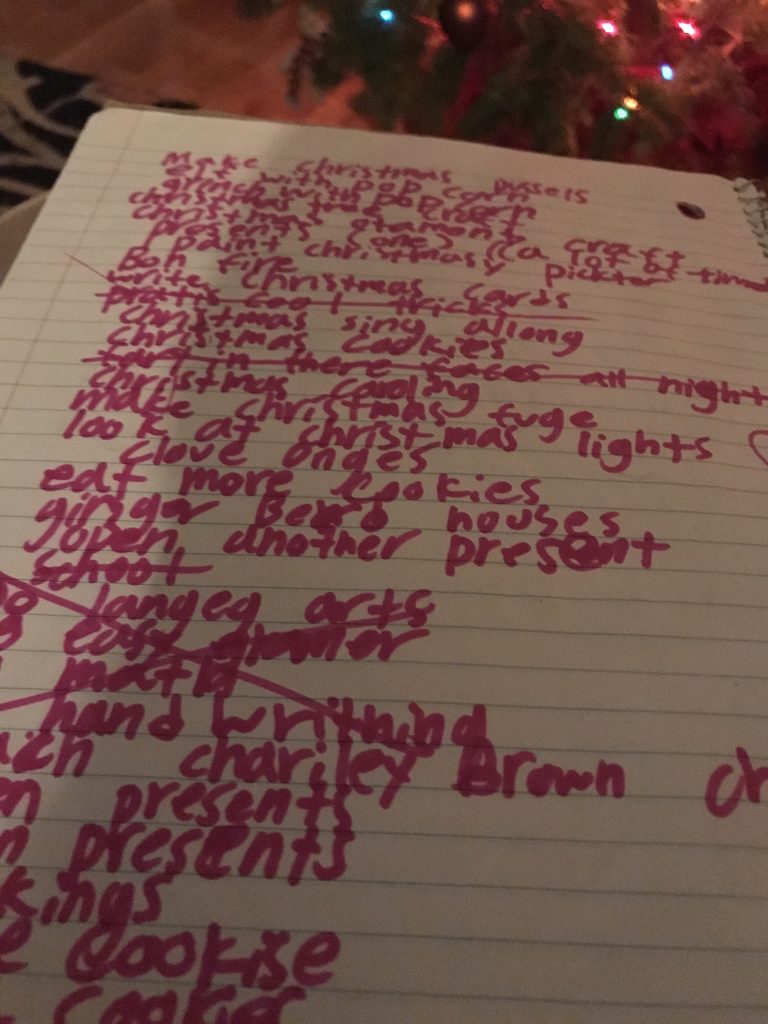 make christmas pussels
elf with pop corn
grinch with popcorn
christmas tree
christmas
presents (one) (a craft
paint christmasy pickter
Bon fire
write christmas cards
cool tricks
christmas sing allong
christmas cookies
in there faces all night
christmas caoling
make christmas fuge
look at christmas lights
clove onges
eat more cookies
ginger Berd houses
open another present
school
langeg arts
easy
math
hand writhing
chariley Brown
presents
presents
kings
cookise
cookies